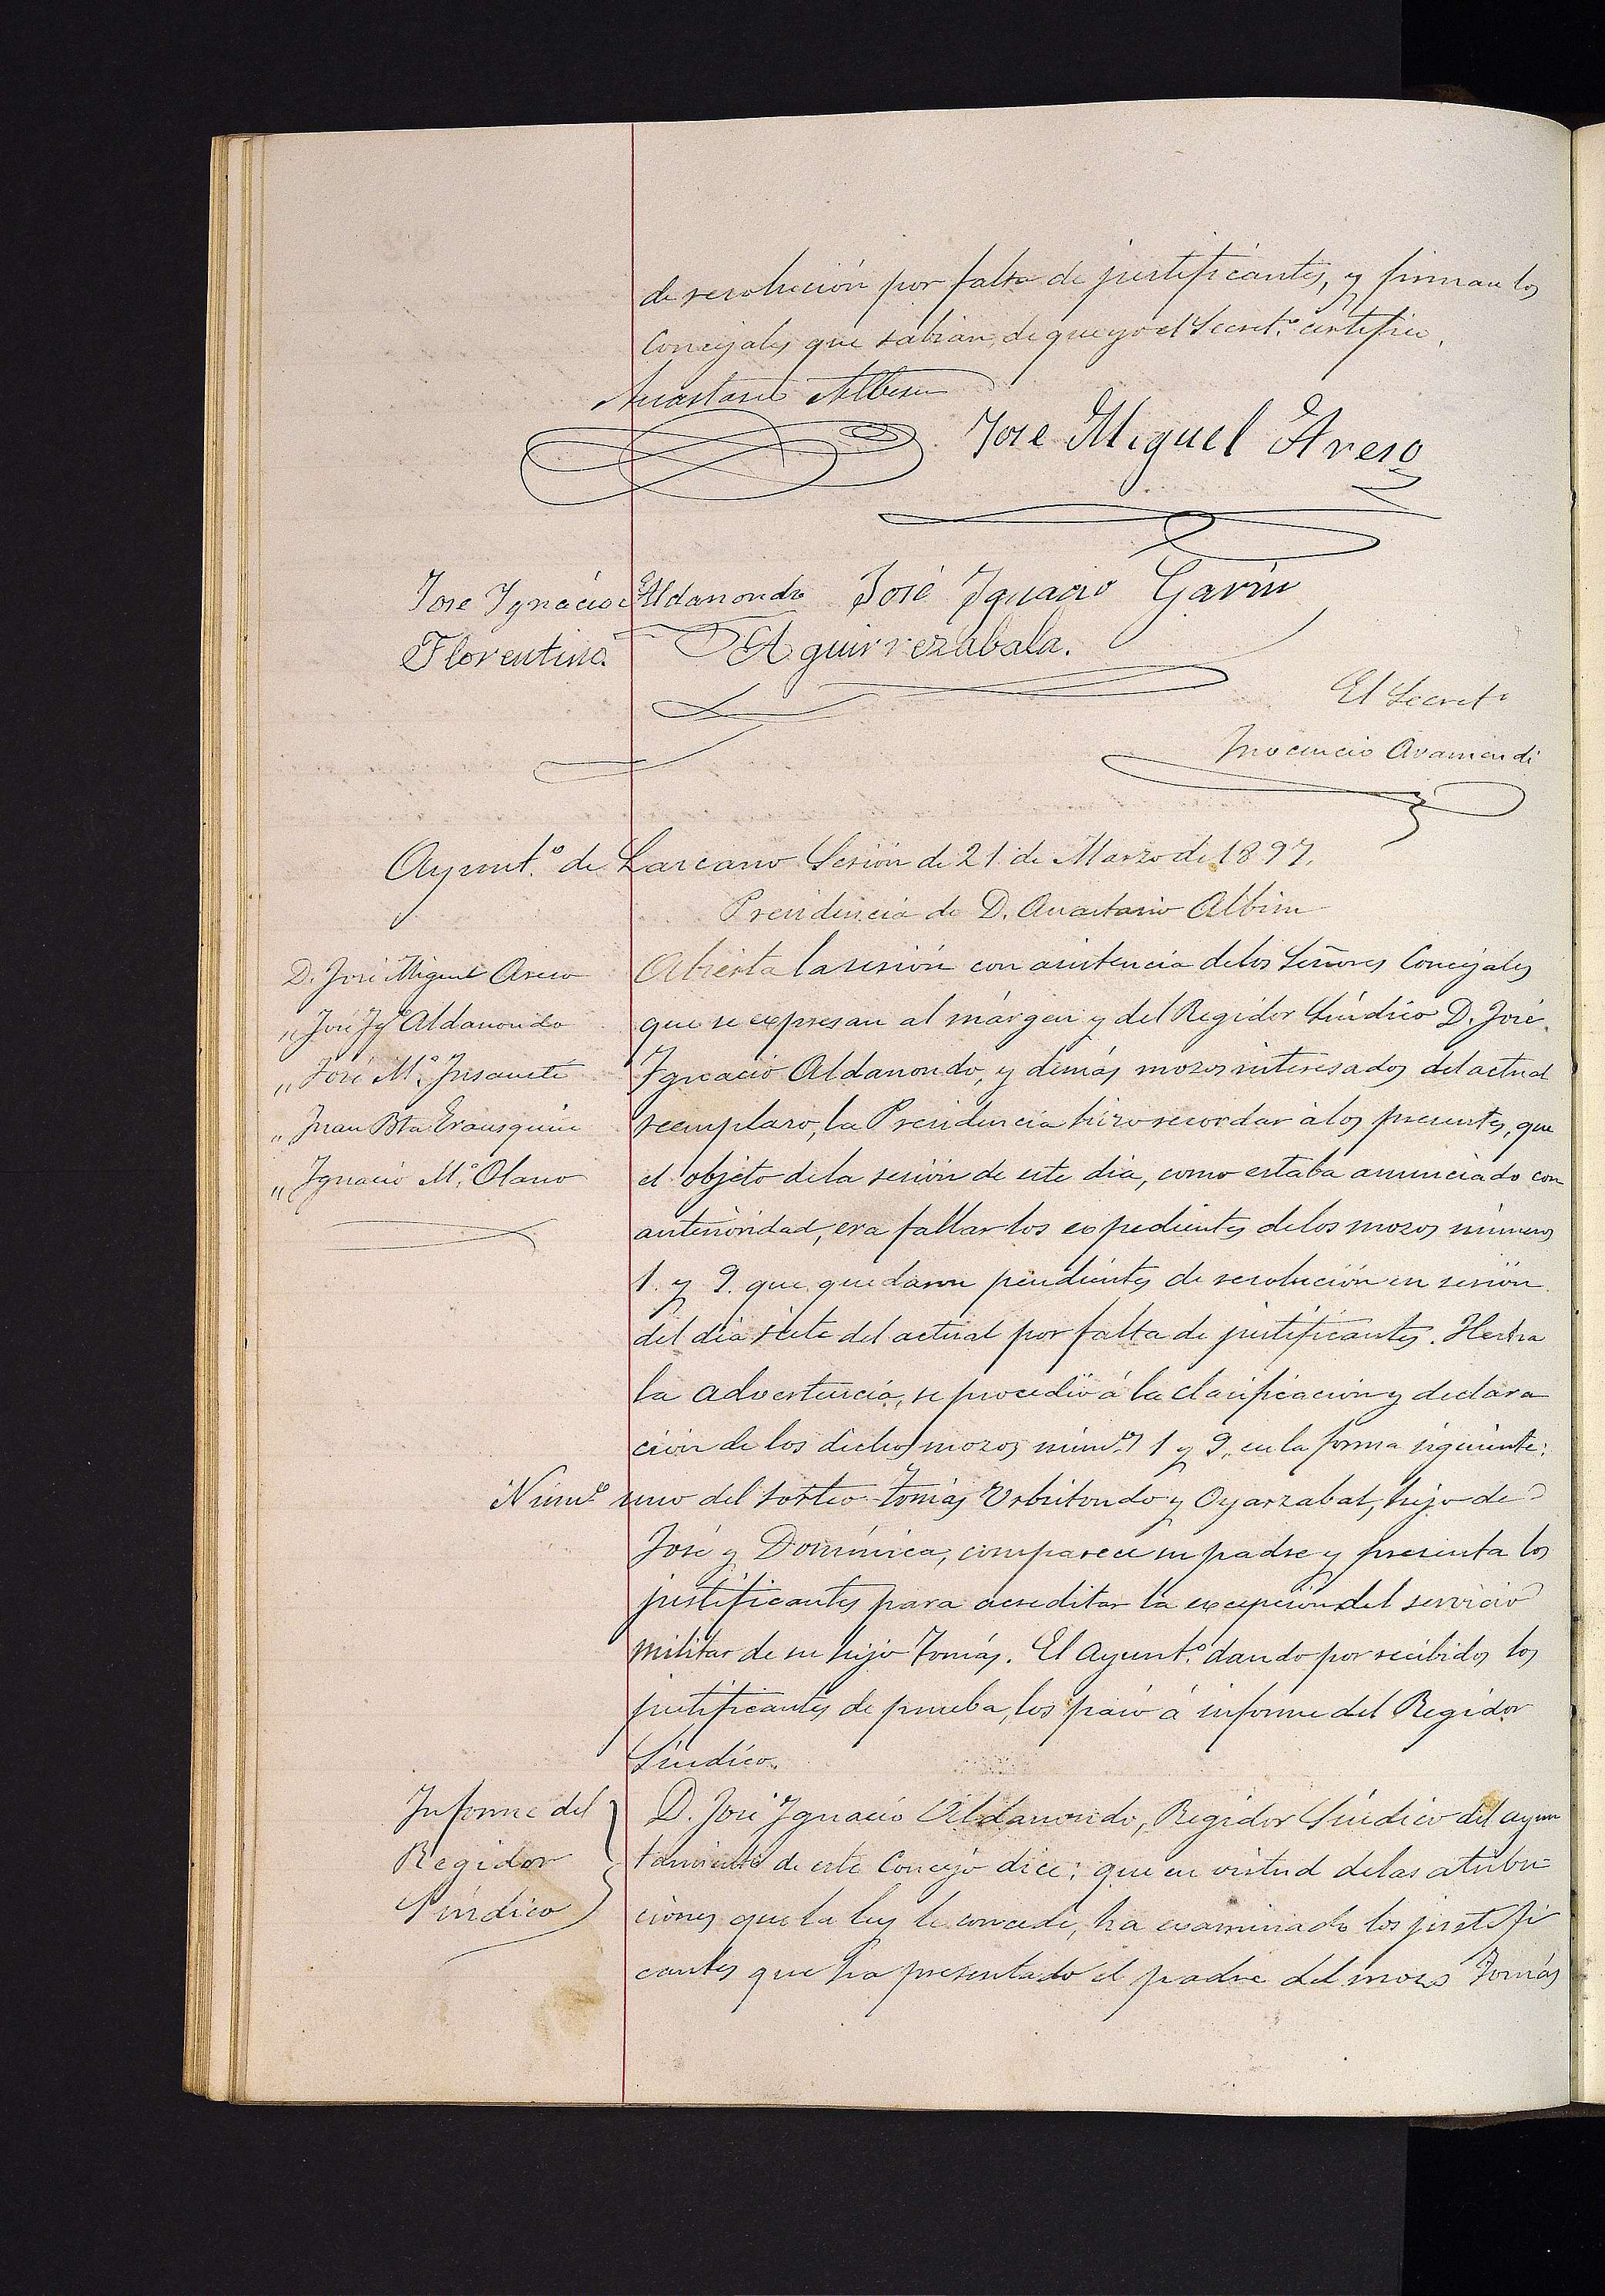 de resolución por falta de justificantes, y firman los
Concejales que sabian, de que yo el Secret.º certifico.
Anastasio Albisu
José Miguel Areso
Jose Ygnacio Aldanondo José Ygnacio Garin
Florentino Aguirrezabala.
El Secret.º
Inocencio Aramendi
Ayunt.º de Lazcano Sesión de 21 de Marzo de 1897.
Presidencia de D. Anastasio Albisu
D. José Miguel Areso
„ José Ygº Aldanondo
„ José M.ª Insausti
„ Juan Bta Erausquin
„ Ygnacio M.ª Olano
Abierta la sesión con asistencia de los Señores Concejales
que se expresan al márgen y del Regidor Síndico D. José
Ygnacio Aldanondo, y demás mozos interesados del actual
reemplazo, la Presidencia hizo recordar á los presentes, que
el objeto de la sesión de este dia, como estaba anunciado con
anterioridad, era fallar los expedientes de los mozos números
1. y 9. que quedaron pendientes de resolución en sesión
del dia siete del actual por falta de justificantes. Hecha
la advertencia, se procedió á la clasificación y declara
ción de los dichos mozos núm.os 1 y 9, en la forma siguiente:
Núm.º uno del sorteo Tomás Urbitondo y Oyarzabal, hijo de
José y Dominica, comparece su padre y presenta los
justificantes para acreditar la excepción del servicio
militar de su hijo Tomás. El Ayunt.º dando por recibidos los
justificantes de prueba, los pasó á informe del Regidor
Síndico.
Informe del
Regidor
Síndico
D. José Ygnacio Aldanondo, Regidor Síndico del ayun
tamiento de este Concejo dice: que en virtud de las atribu=
ciones que la ley le concede, ha examinado los justifi
cantes que ha presentado el padre del mozo Tomás